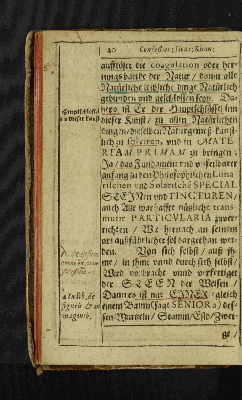 20 Confession: Ricar: Khun:
auffhöret die coagulation oder ber-
nungs bände der Natur / damit alle
Natürliche leibliche dinge Natürlich
gebunden und geschlossen seyn. Da-
hero ist Er der Hauptschlüssel inn
dieser Kunst / zu allen Natürlichen
dingen / dieselben Naturgemeß künst-
lich zu solviren, und in MATE-
RIAM PRIMAM zu bringen:
Ja / das Fundament und unfeilbarer
anfang zu den Philosophischen Luna-
rischen und Solarische SPECIAL
STEINen und TINCTUREN /
auch Alle warhaffte nützliche trans-
mutir PARTICULARIA zuver-
richten / Wie hernach an seinem
ort außführlicher sol dargethan wer-
den. Von sich selbst / auß ihme /
in ihme vnnd durch sich selbst /
Wird vollbracht vnnd verfertiget
der STEEN der Weisen /
Dann es ist nur EINER gleich
einem Baum (sagt SENIOR a) des-
sen Wurtzeln / Stamm / Este / Zwei-
ge /
a In lib. de
figuris & i-
maginib.